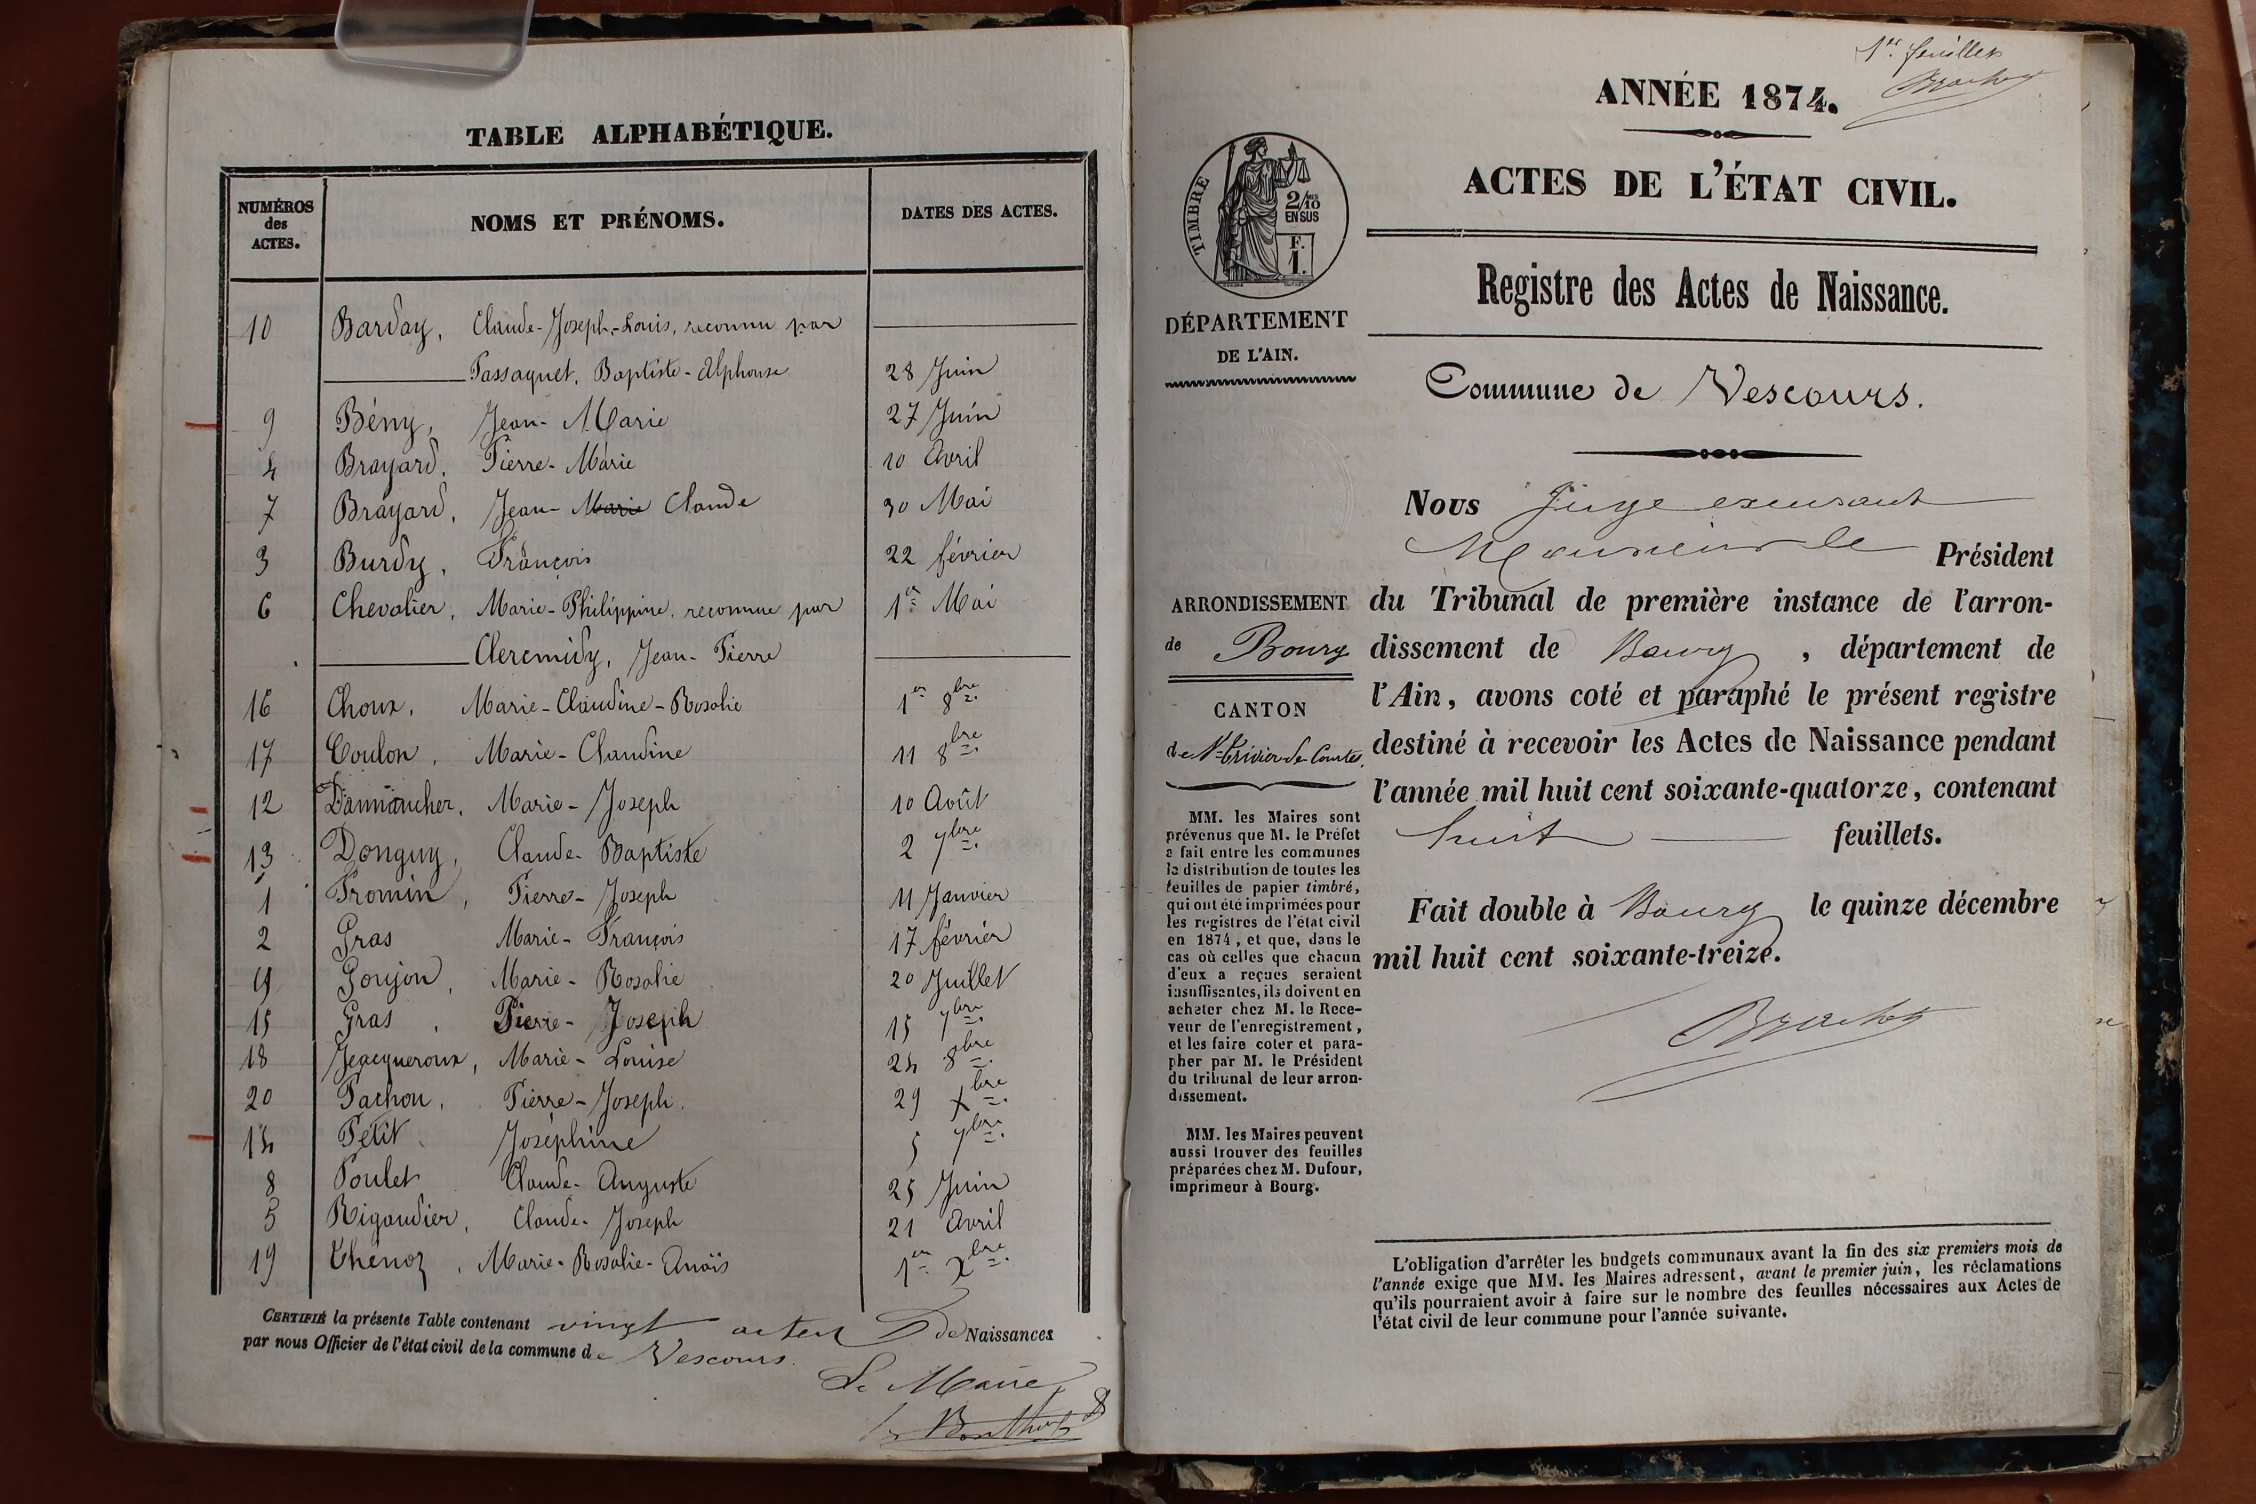 TABLE ALPHABÉTIQUE.
NUMÉROS des ACTES. NOMS ET PRÉNOMS. DATES DES ACTES.
10 Barday, Claude-Joseph-Louis, reconnu par
Passaquet, Baptiste-Alphonse 28 Juin
9 Bény, Jean-Marie 27 Juin
4 Brayard, Pierre-Marie 10 Avril
7 Brayard, Jean-Marie Claude 30 Mai
3 Burdy, François 22 février
6 Chevalier, Marie-Philippine, reconnue par 1er Mai
Cleremidy, Jean-Pierre
16 Choux, Marie-Claudine-Rosalie 1er 8bre
17 Coulon, Marie-Claudine 11 8bre
12 Dannancher, Marie-Joseph 10 Août
13 Donguy, Claude-Baptiste 2 7bre
1 Fromin, Pierre-Joseph 11 Janvier
2 Gras Marie-François 17 février
11 Goujon, Marie-Rosalie 20 Juillet
15 Gras, Pierre-Joseph 15 7bre
18 Jeacqueroux, Marie-Louise 24 8bre
20 Pachon, Pierre-Joseph. 29 Xbre
14 Petit Joséphine 5 7bre
8 Poulet Claude-Auguste 25 Juin
5 Rigaudier, Claude-Joseph 21 Avril
19 Thenoz, Marie-Rosalie-Anaïs 1er Xbre
CERTIFIÉ la présente Table contenant vingt actes de Naissances
par nous Officier de l'état civil de la commune de Vescours.
Le Maire,
1er feuillet
ANNÉE 1874.
ACTES DE L'ÉTAT CIVIL.
Registre des Actes de Naissance.
Commune de Vescours.
TIMBRE
2/10
EN SUS
F.
1.
DÉPARTEMENT
DE L'AIN.
ARRONDISSEMENT
de Bourg
CANTON
de St-Trivier-de-Courtes.
MM. les Maires sont
prévenus que M. le Préfet
a fait entre les communes
la distribution de toutes les
feuilles de papier timbré,
qui ont été imprimées pour
les registres de l'état civil
en 1874, et que, dans le
cas où celles que chacun
d'eux a reçues seraient
insuffisantes, ils doivent en
acheter chez M. le Rece-
veur de l'enregistrement,
et les faire coter et para-
pher par M. le Président
du tribunal de leur arron-
dissement.
MM. les Maires peuvent
aussi trouver des feuilles
préparées chez M. Dufour,
imprimeur à Bourg.
NOUS Juge excusant
Monsieur le Président
du Tribunal de première instance de l'arron-
dissement de Bourg, département de
l'Ain, avons coté et paraphé le présent registre
destiné à recevoir les Actes de Naissance pendant
l'année mil huit cent soixante-quatorze, contenant
huit feuillets.
Fait double à Bourg le quinze décembre
mil huit cent soixante-treize.
L'obligation d'arrêter les budgets communaux avant la fin des six premiers mois de
l'année exige que MM. les Maires adressent, avant le premier juin, les réclamations
qu'ils pourraient avoir à faire sur le nombre des feuilles nécessaires aux Actes de
l'état civil de leur commune pour l'année suivante.